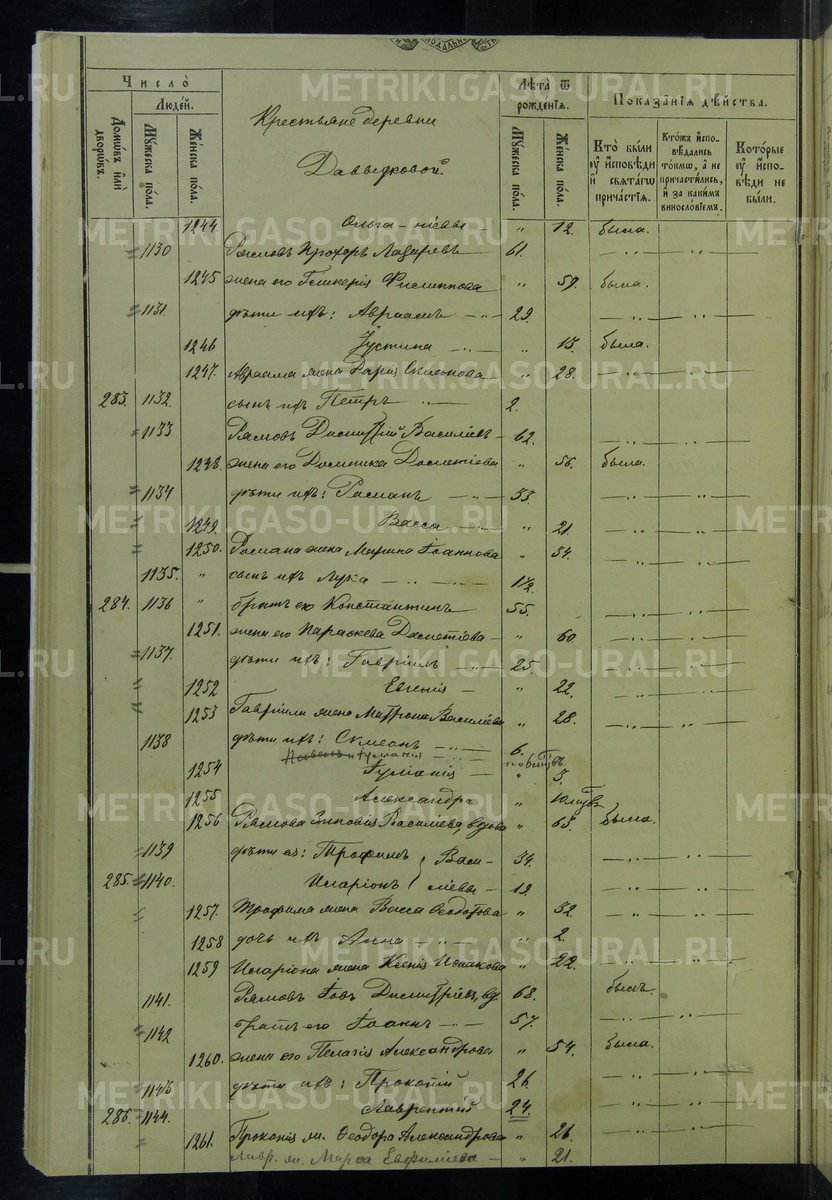 Число̀
Людей.
Домѡвъ или дворѡвъ.
Мꙋжеска пола.
Женска пола.
Крестьяне деревни
Давыдковой.
Лѣта̀ ѿ рожденїѧ.
Мꙋжеска пола.
Женска пола.
Показанїѧ дѣйства.
Кто̀ были оу҆ исповѣди и свѧтагѡ причастїѧ.
Ктожъ исповѣдались токмѡ, а не причастились, и за какимъ винословїемъ.
Которые оу҆ исповѣди не были.
1244. Ольга - " 12. была.
1130 Прохоръ Лазаревъ 61.
1245 жена его Гликерія Филиппова " 59. была.
1131. дѣти ихъ: Авраамъ 29.
1246 Іустина " 13. была.
1247. Авраама жена Дарія Симеонова " 28.
283. 1132. сынъ ихъ Петръ 2.
1133 Рямовъ Димитрій Василіевъ - 62.
1248. жена его Домника Дометіева " 56. была.
1134 дѣти ихъ: Романъ 33.
1249. Васса " 21.
1250. Романа жена Марина Іоаннова " 34.
1135. " сынъ ихъ Лука 1/2.
284. 1136 " братъ его Константинъ 55.
1251. жена его Параскева Дометіева - " 60
1137. дѣти ихъ: Гавріилъ 25.
1252 Евгенія - " 22.
1253 Гавріила жена Матрона Василіева " 28.
1138 дѣти ихъ: Симеонъ 6.
1254 Іуліанія " 3.
1255 Александра "
1256 Рямова Зиновія Василіева, вдова " 63. была.
1139 дѣти ея: Трофимъ Васи- 34.
285. 1140. Иларіонъ ліевы - 19.
1257. Трофима жена Васса Ѳеодотова " 32.
1258 дочь ихъ Анна " 2.
1259 Иларіона жена Ксенія Исаакова " 22.
1141. Рямовъ Іовъ Димитріевъ, вд. 68. былъ.
1142 братъ его Іоаннъ 57.
1260. жена его Пелагія Александрова " 54. была.
1143 дѣти ихъ: Прокопій 26.
286. 1144. Лаврентій 24.
1261. Прокопія ж. Ѳеодора Александрова " 26.
Лавр. ж. Марѳа Евфиміева - " 21.
METRIKI.GASO-URAL.RU